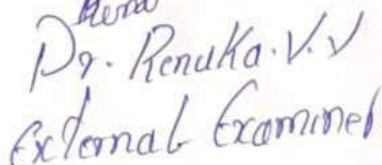 Dr. Renuka. V. V
External Examiner